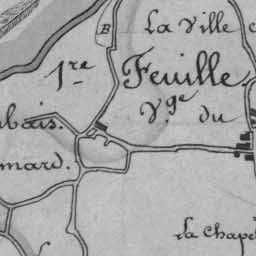 La Ville
B
1re Feuille
Vge du
bais.
mard.
La Chap